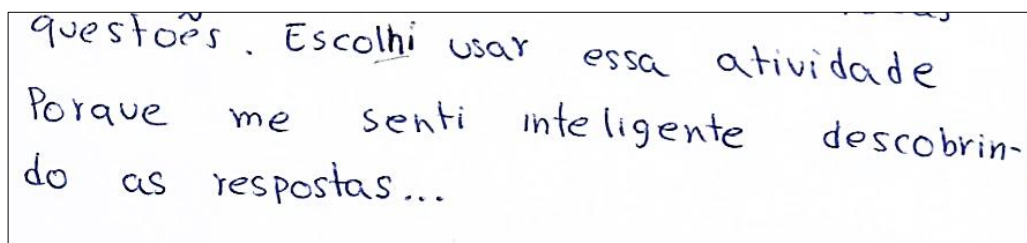 questões. Escolhi usar essa atividade
Porque me senti inteligente descobrin-
do as respostas...